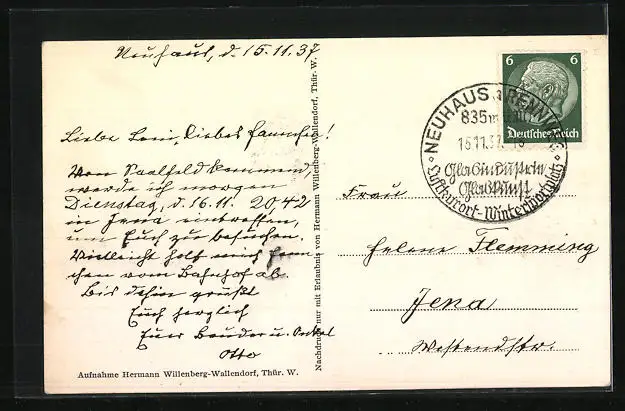 Neuhaus, d. 15.11.37
Liebe Leni, liebes Hannchen!
Von Saalfeld kommend
werde ich morgen
Dienstag, d. 16.11. 20,42
in Jena eintreffen,
um Euch zu besuchen.
Vielleicht holt mich Hann-
chen vom Bahnhof ab.
Bis dahin grüßt
Euch herzlich
Euer Bruder u. Onkel
Otto
Aufnahme Hermann Willenberg-Wallendorf, Thür. W.
Nachdruck nur mit Erlaubnis von Hermann Willenberg-Wallendorf, Thür. W.
6 6
Deutsches Reich
NEUHAUS a. RENNWEG
835m ü.M.
15.11.37
Glasindustrie
Glaskunst
Luftkurort-Wintersportplatz
Frau
Helene Flemming
Jena
Westendstr.